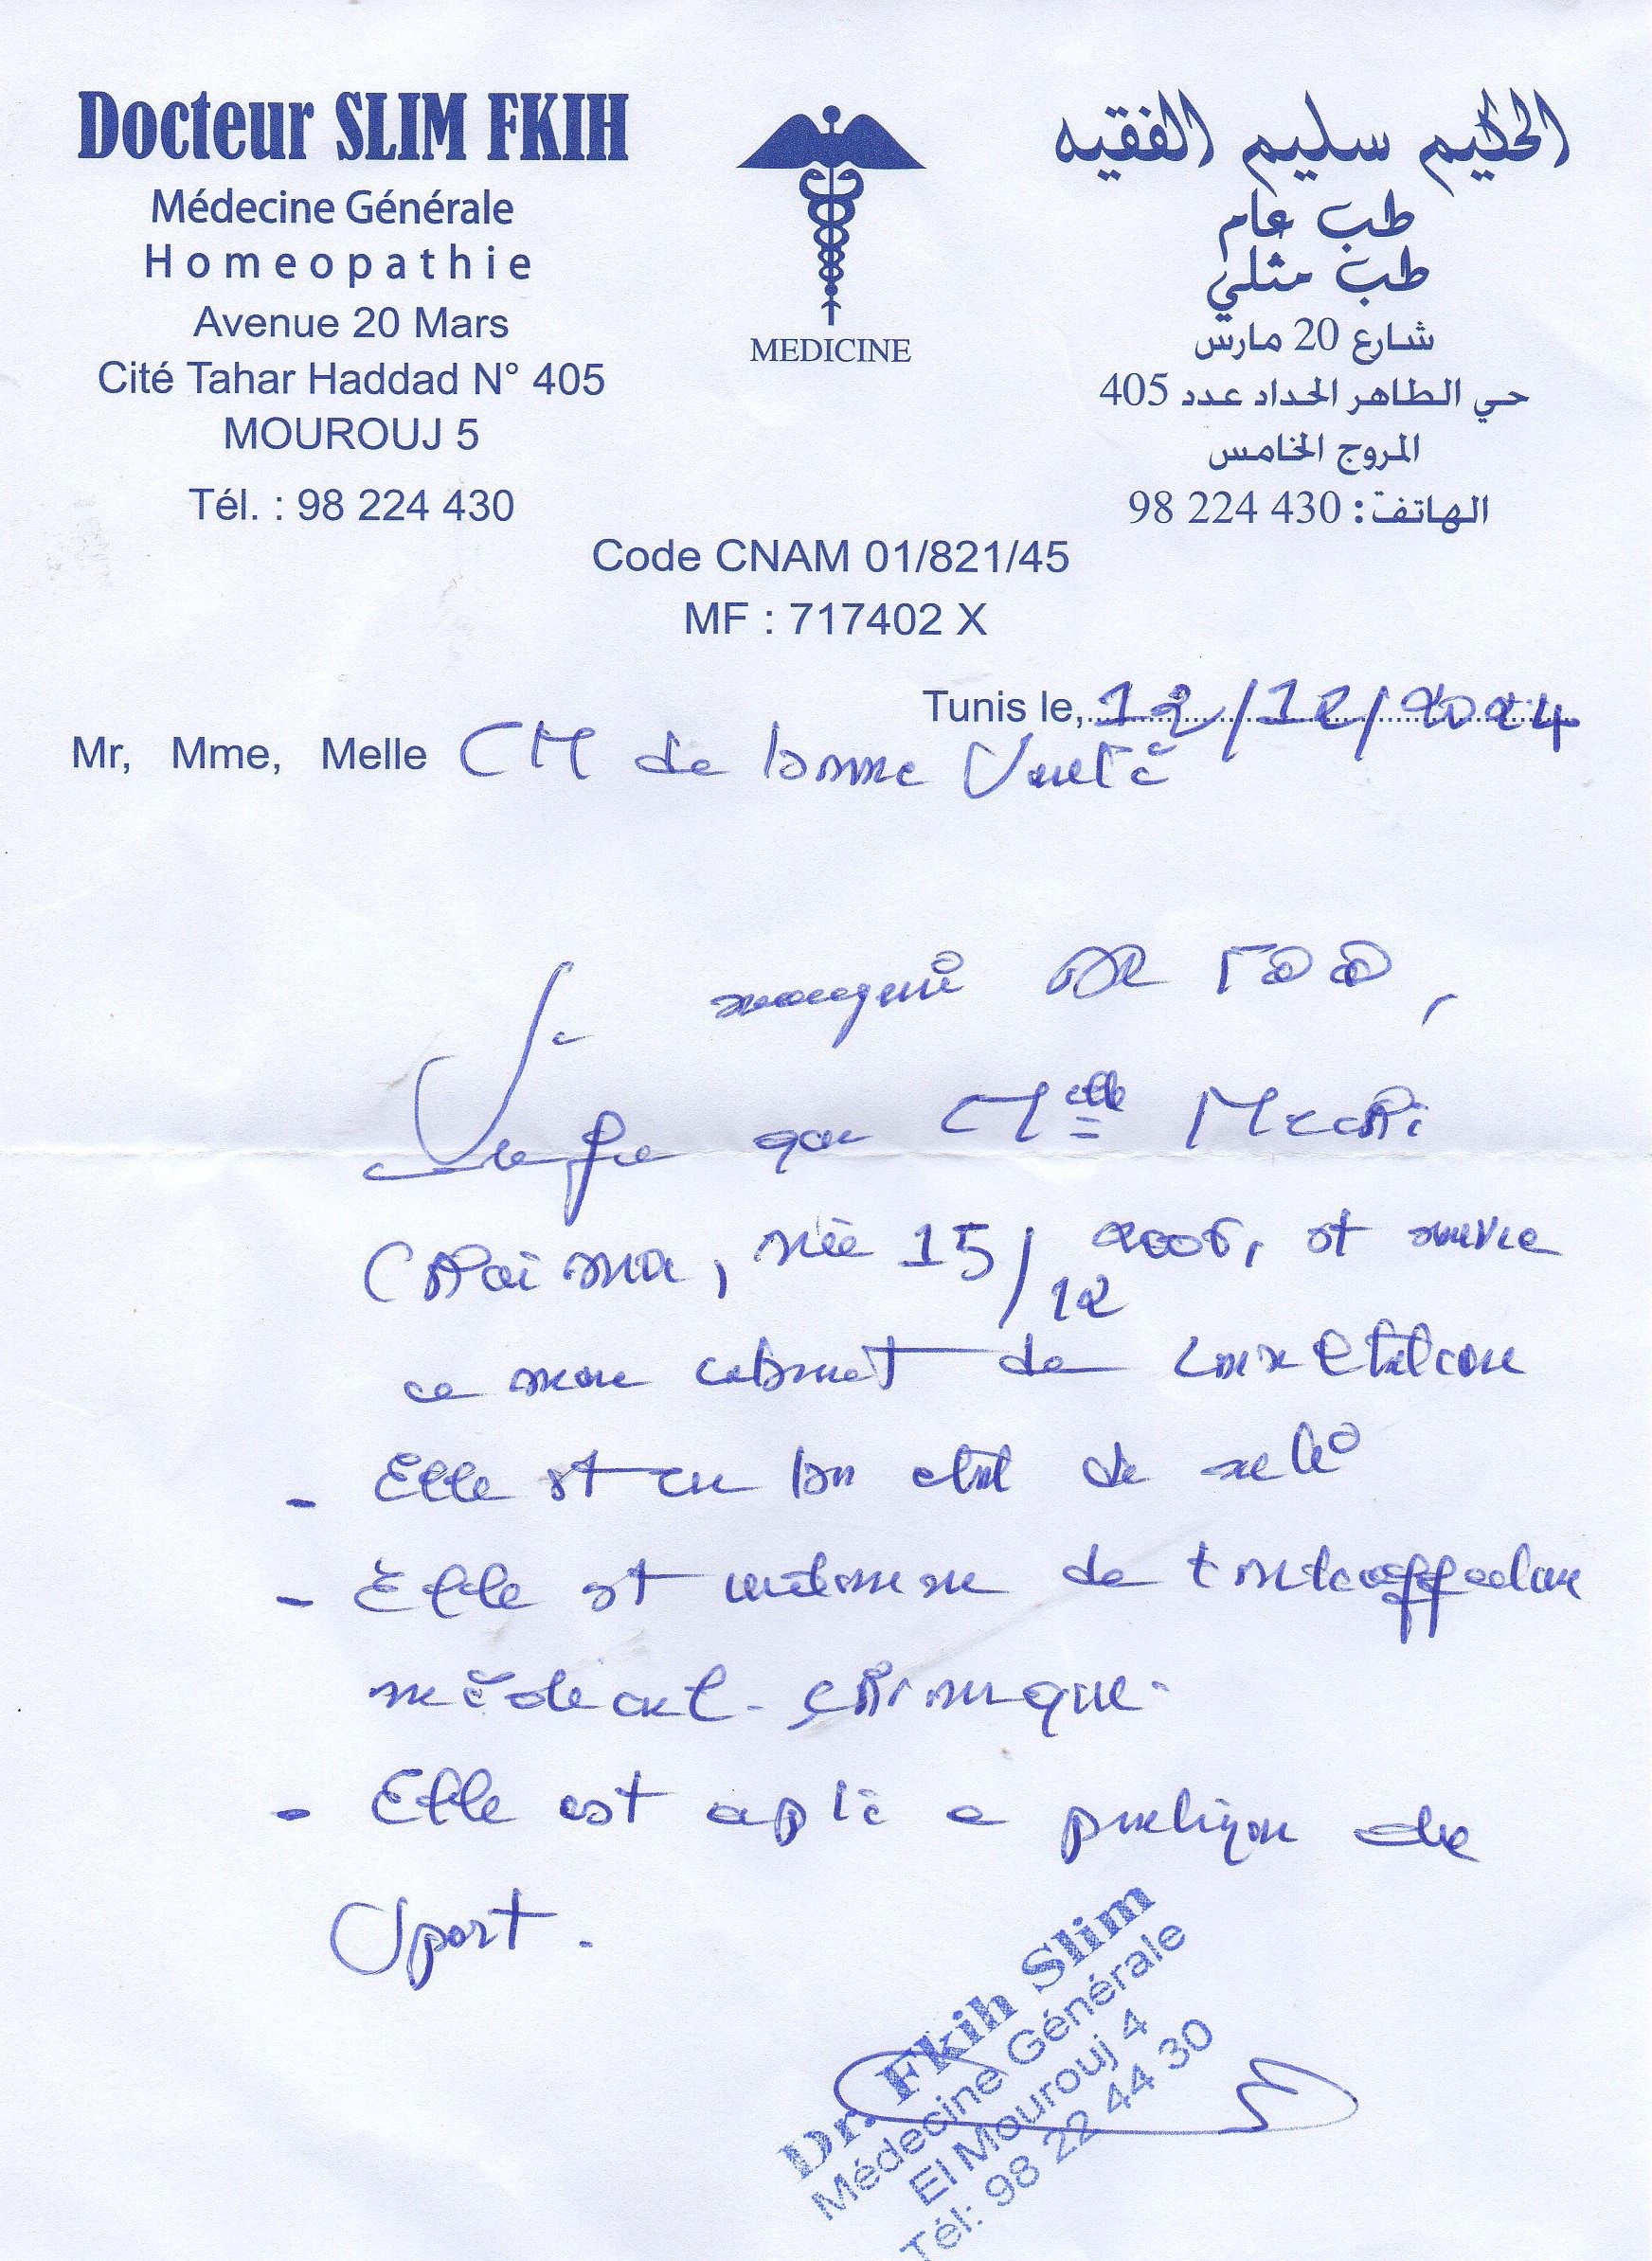 Docteur SLIM FKIH
Médecine Générale
Homeopathie
Avenue 20 Mars
Cité Tahar Haddad N° 405
MOUROUJ 5
Tél. : 98 224 430
MEDICINE
الحكيم سليم الفقيه
طب عام
طب مثلي
شارع 20 مارس
حي الطاهر الحداد عدد 405
المروج الخامس
الهاتف: 430 224 98
Code CNAM 01/821/45
MF : 717402 X
Tunis le, 12/12/2024
Mr, Mme, Melle CM de bonne Santé
Je soussigné DR
certifie que Melle Mejri
Chaima, née 15/12 2006, est suivie
a mon cabinet de consultation
- Elle est en bon etat de santé
- Elle est indemne de toute affection
médical- chronique-
- Elle est apte a pratique de
Sport.
Dr. Fkih Slim
Médecine Générale
El Mourouj 4
Tél: 98 22 44 30